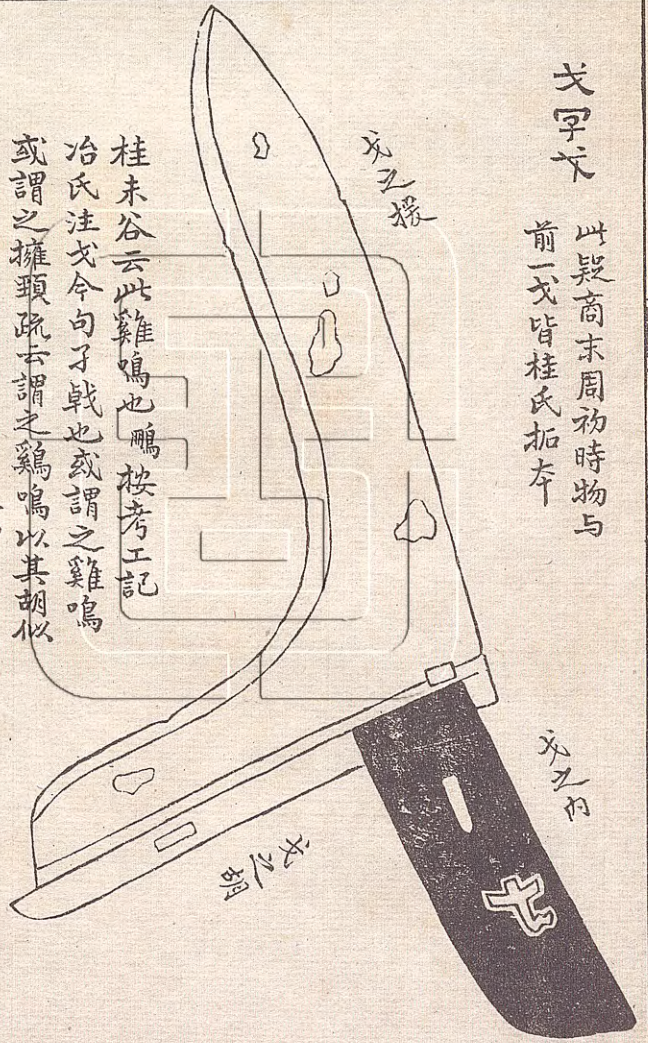 戈字戈
此疑商末周初時物与
前一戈皆桂氏拓夲
戈之援
戈之内
戈之胡
桂未谷云此雞鳴也鵬按考工記
冶氏注戈今句孑戟也或謂之雞鳴
或謂之擁頸疏云謂之鷄鳴以其胡似